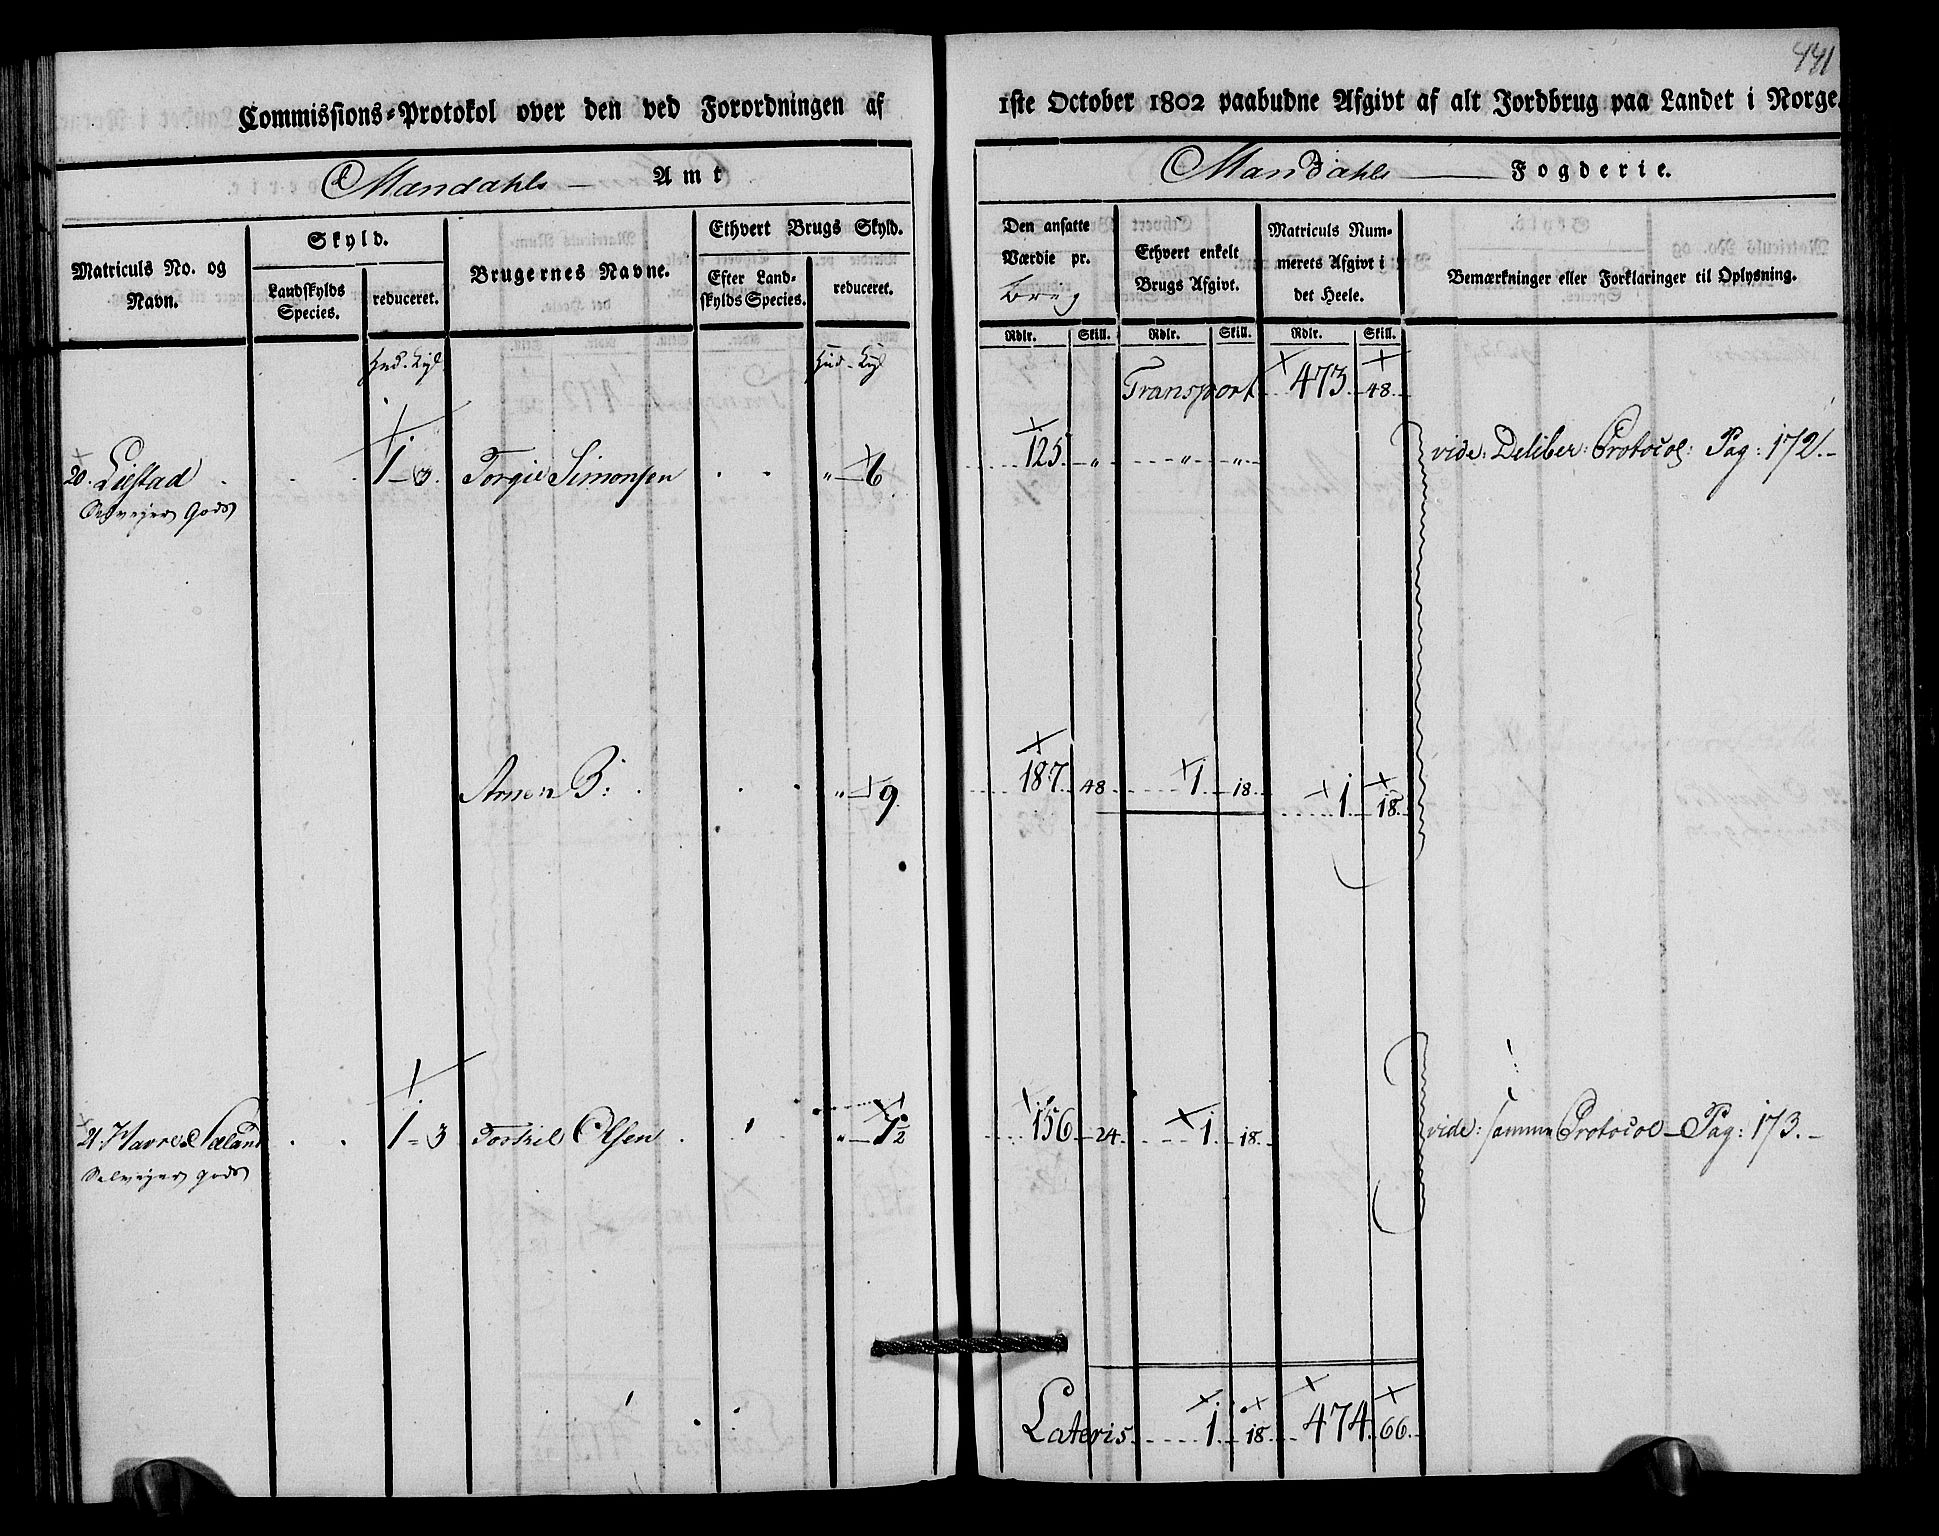 441
Commissions-Protokol over den ved Forordningen af 1ste October 1802 paabudne Afgivt af alt Jordbrug paa Landet i Norge.
Mandahls Amt
Mandahls Fogderie.
Matriculs No. og Navn.
Skyld.
Landskylds Species.
reduceret.
Brugernes Navne.
Ethvert Brugs Skyld.
Efter Landskylds Species.
reduceret.
Den ansatte Værdie pr. Brug
Ethvert enkelt Brugs Afgivt.
Matriculs Nummerets Afgivt i det Heele.
Bemærkninger eller Forklaringer til Oplysning.
Rdlr. Skill. Rdlr. Skill. Rdlr. Skill.
Hud. Hud.
Transport 473. 48.
20. Liestad 1 - 3. Torgie Simonsen " 6 125. " " " vide: Deliber: Protocol: Pag: 172.
Selvejer Gods
Arnen B: " 9. 187. 48 1. 18. 1. 18.
21. 1 - 3 Torkel Olsen " 1½ 156 24. 1. 18. vide: samme Protocol - Pag: 173.
Selvejer gods
Lateris 1. 18. 474. 66.